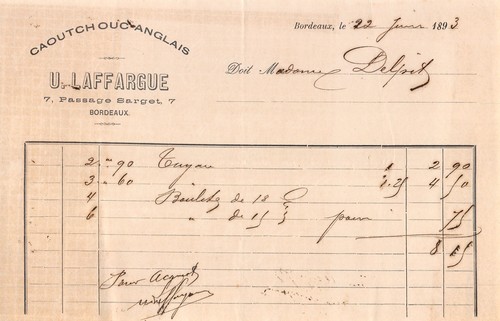 CAOUTCHOUC ANGLAIS
U. LAFFARGUE
7, Passage Sarget, 7
BORDEAUX
Bordeaux, le 22 Juin 1893
Doit Madame Delpit
2 " 90 Tuyau 1 2 90
3 " 60 1.25 4 50
4 de 18
6 " de 15 pour 75
8 15
Pour Acquit